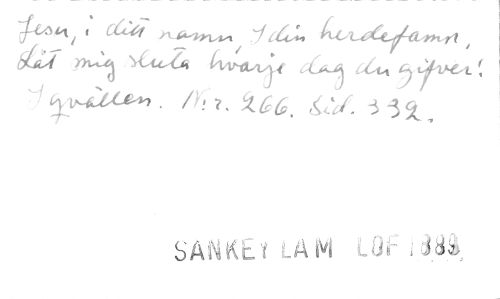 Jesu, i ditt namn, I din herdefamn,
Låt mig sluta hvarje dag du gifver!
I qvällen. N:r. 266. Sid. 332.
SANKEY LAM LOF 1889.